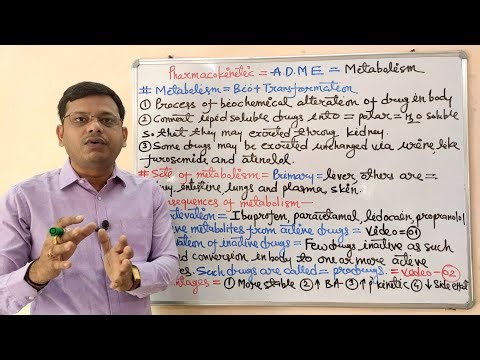 Pharmacokinetic = A.D.M.E = Metabolism
# Metabolism = Bio + Transformation
① Process of biochemical alteration of drug in body
② Convert lipid soluble drugs into = polar = H₂O soluble
so that they may excreted throug kidney.
③ Some drugs may be excreted unchanged via urine like
furosemide and atenolol.
# Site of metabolism = Primary = lever others are =
intestine, lungs and plasma, skin.
sequences of metabolism —
= Ibuprofen, paracetamal, ledocain, propranolol
metabolites from active drugs = Video = 01
vation of inactive drugs = Few drugs inactive as such
conversion in body to one or more active
Such drugs are called = prodrugs. = video = 02
ntages = ① More stable ② ↑ BA ③ ↑ kinetic ④ ↓ Side effect